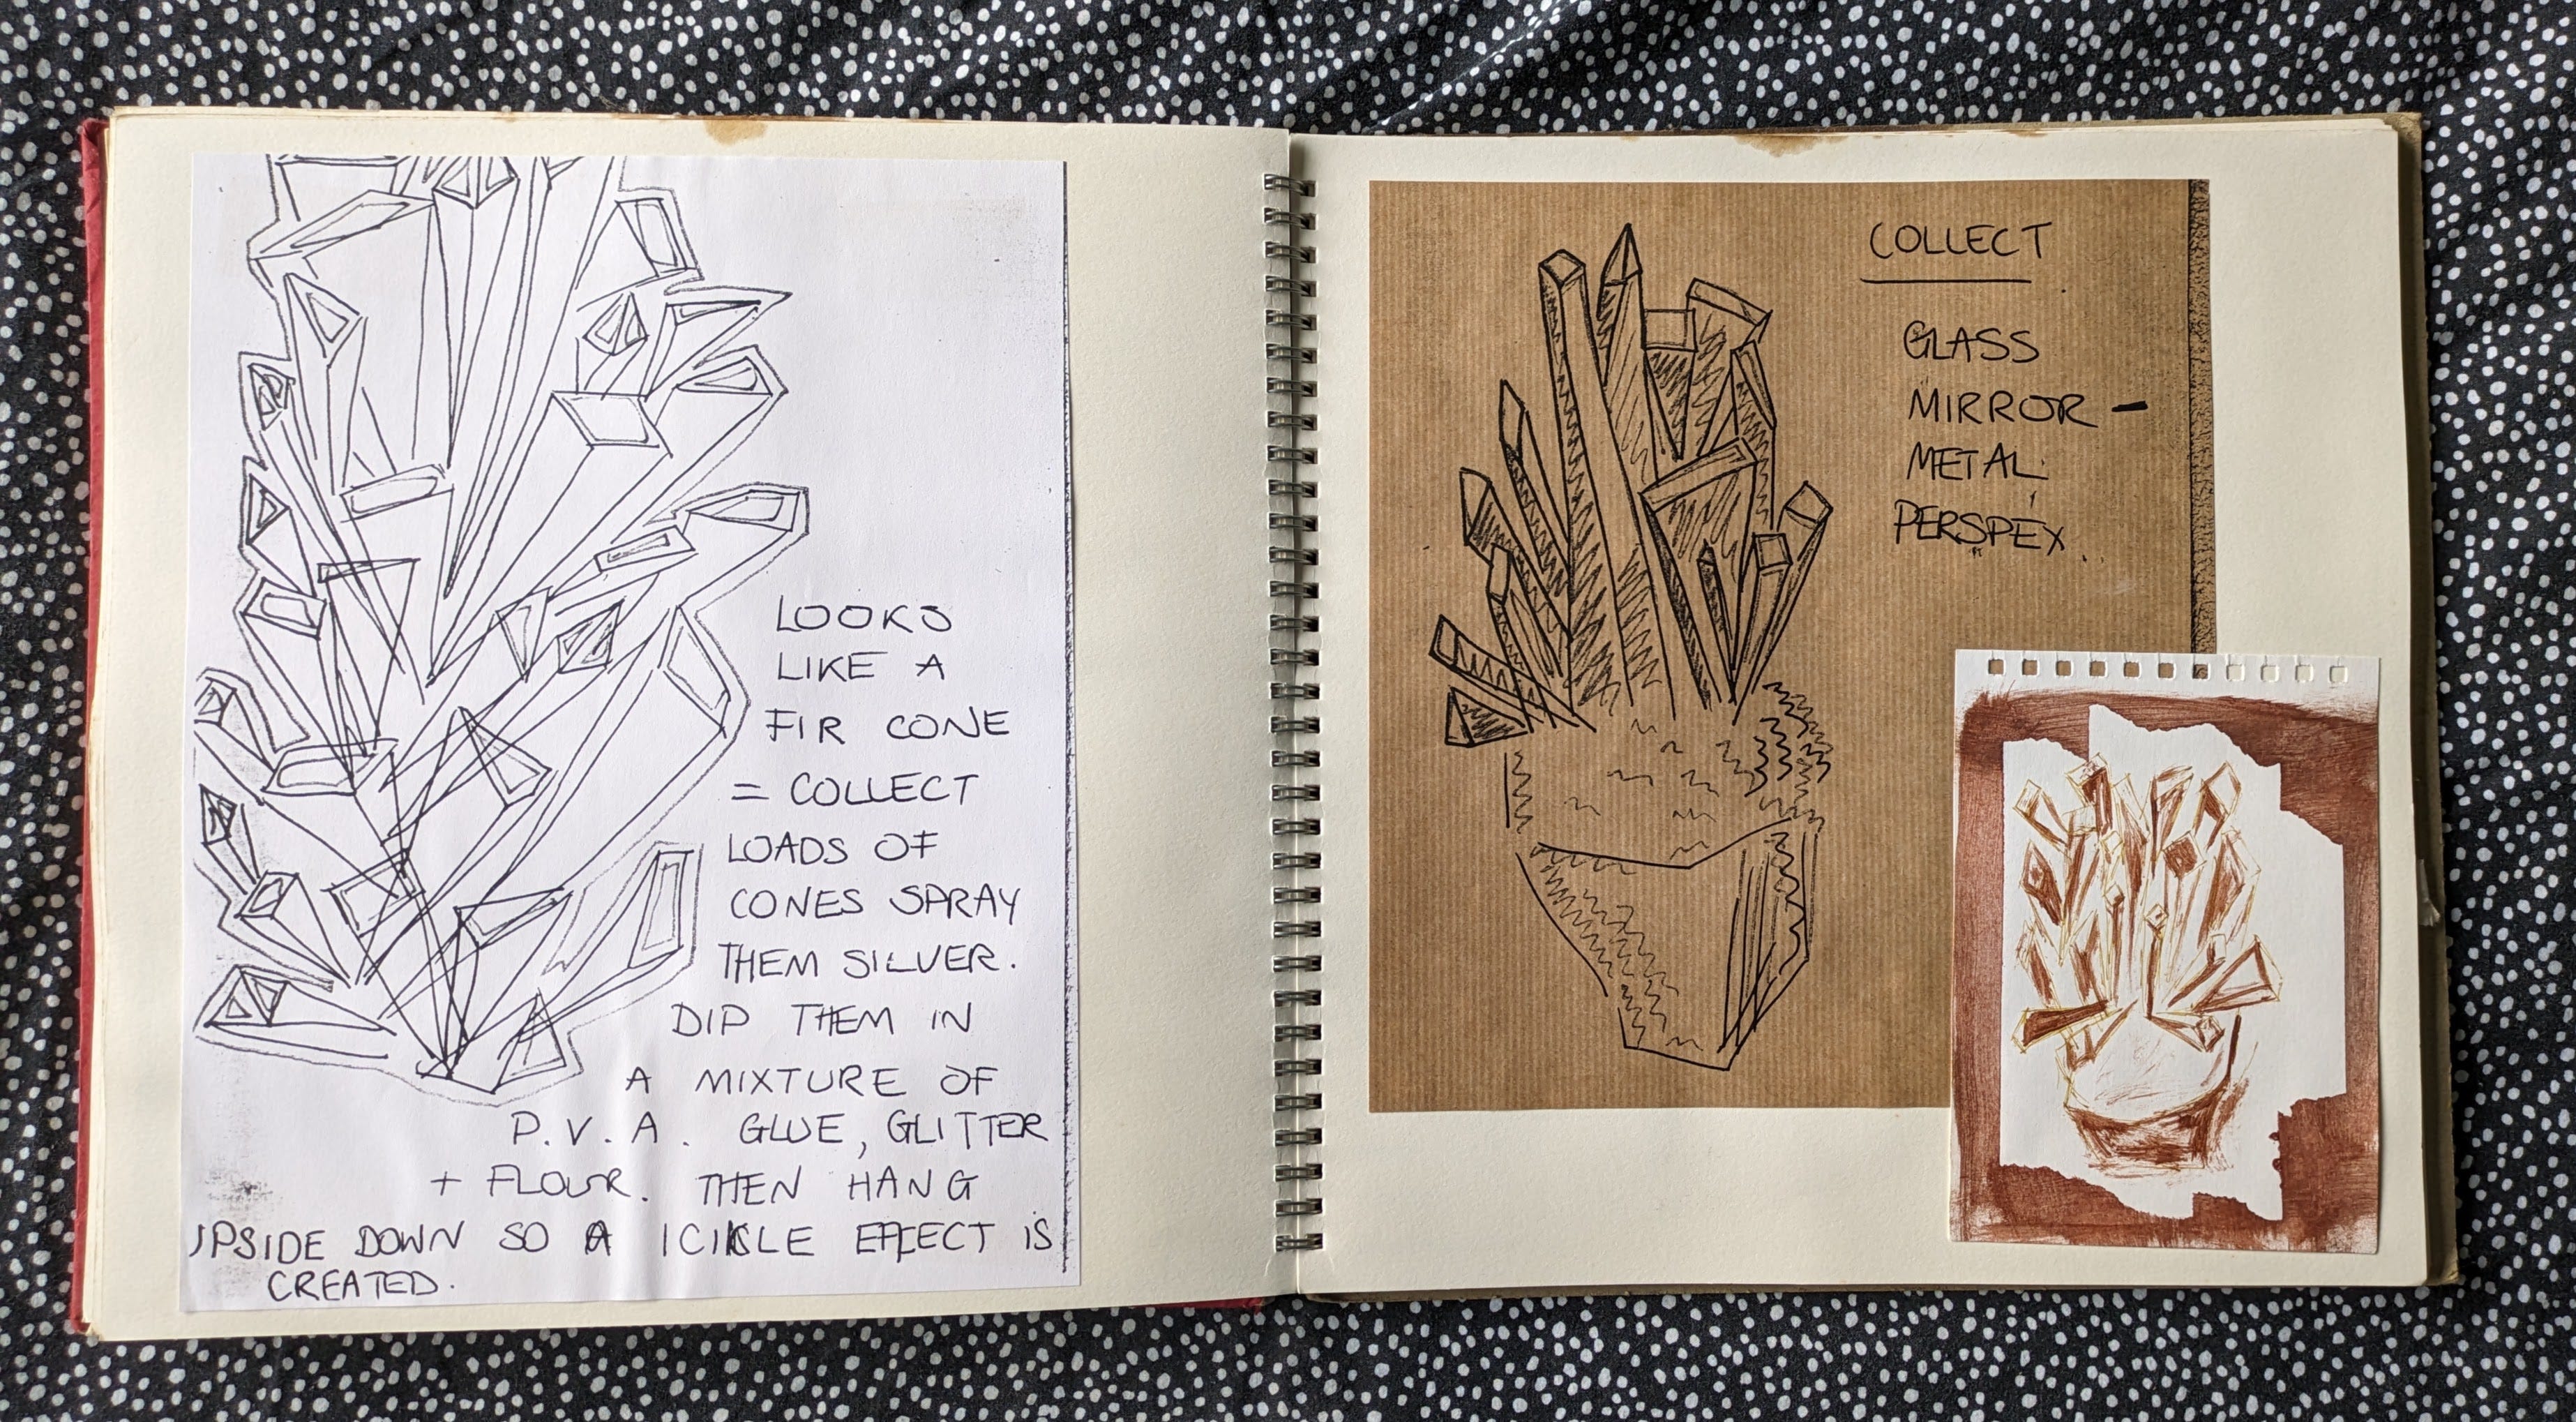 LOOKS
LIKE A
FIR CONE
= COLLECT
LOADS OF
CONES SPRAY
THEM SILVER.
DIP THEM IN
A MIXTURE OF
P.V.A. GLUE, GLITTER
+ FLOUR. THEN HANG
UPSIDE DOWN SO A ICIKLE EFFECT IS
CREATED.
COLLECT
GLASS
MIRROR –
METAL
PERSPEX.